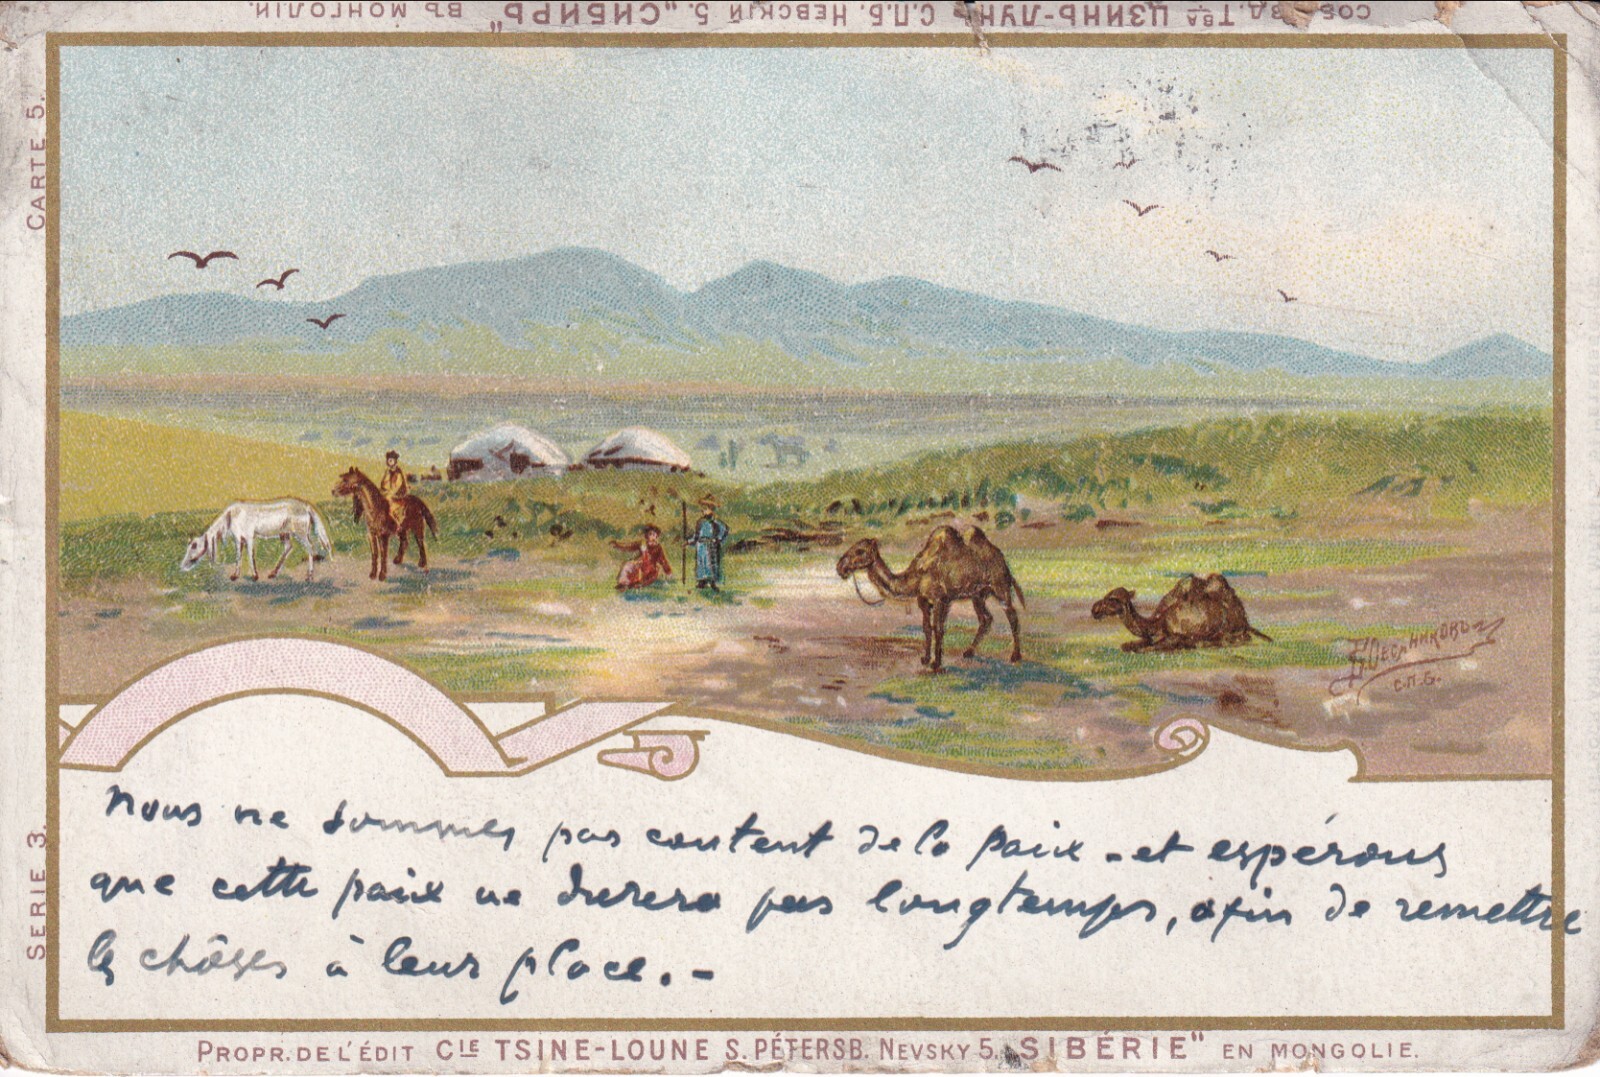 СОБ. ИЗД. Тва ЦЗИНЬ-ЛУНЬ С.П.Б. НЕВСКІЙ 5. „СИБИРЬ" ВЪ МОНГОЛІИ.
CARTE 5.
SERIE 3.
С.П.Б.
Nous ne sommes pas content de la paix - et espérons
que cette paix ne durera pas longtemps, afin de remettre
les chôses à leur place. -
PROPR. DE L'ÉDIT CIE TSINE-LOUNE S. PÉTERSB. NEVSKY 5. „SIBÉRIE" EN MONGOLIE.